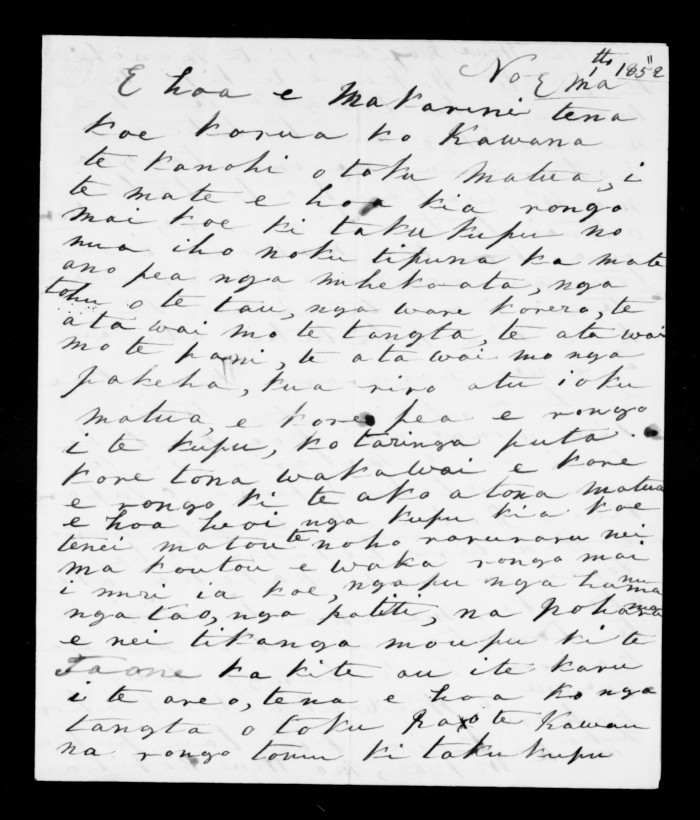 No E ma
th 1852
E hoa e Makarini tena
koe korua ko Kawana
te kanohi o toku matua, i
te mate e hoa kia rongo
mai koe ki taku kupu no
nua iho noku tipuna ka mate
ano pea nga mhekaata, nga
tohu o te tau, nga ware korero, te
ata wai mo te tangta, te ata wai
mo te pani, te ata wai mo nga
pakeha, kua riro atu i oku
matua, e kore pea e rongo
i te kupu, ko taringa puta
kore tona wakawai e kore
e rongo ki te ako a tona matua
e hoa heoi nga kupu kia koe
tenei matou te noho raruraru nei
ma koutou e waka rongo mai
i muri ia koe, ngapu nga hamanu
nga tao, nga patiti, na Poha
e nei tikanga moupu ki te
Taone ka kite au i te karu
i te areo, tena e hoa ko nga
tangta o toku te Kawau
na rongo tonu ki taku kupu